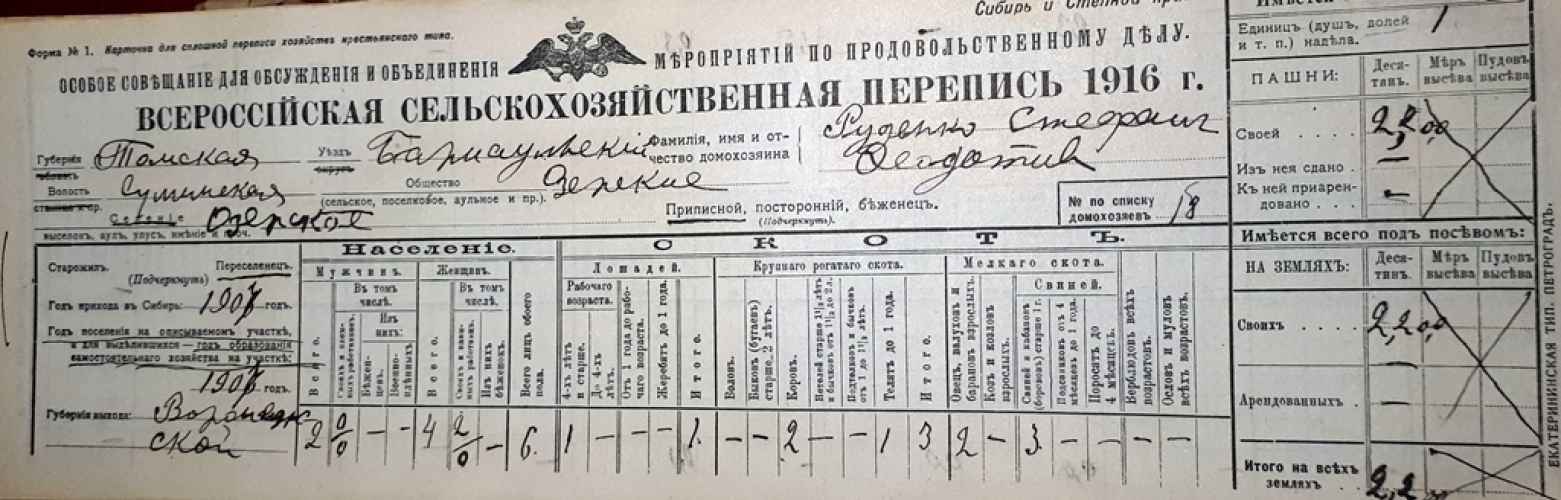 Сибирь и Степной
Форма № 1. Карточка для сплошной переписи хозяйствъ крестьянскаго типа.
ОСОБОЕ СОВѢЩАНІЕ ДЛЯ ОБСУЖДЕНІЯ И ОБЪЕДИНЕНІЯ МѢРОПРІЯТІЙ ПО ПРОДОВОЛЬСТВЕННОМУ ДѢЛУ.
ВСЕРОССІЙСКАЯ СЕЛЬСКОХОЗЯЙСТВЕННАЯ ПЕРЕПИСЬ 1916 г.
Губернія Томская Уѣздъ Барнаульскій Фамилія, имя и от-
чество домохозяина
Руденко Стефанъ
Волость Общество
(сельское, поселковое, аульное и пр.).
Селеніе Озерское Приписной, посторонній, бѣженецъ.
(Подчеркнуть).
№ по списку
домохозяевъ 18
выселокъ, аулъ, улусъ, имѣніе и проч.
Старожилъ. Переселенецъ.
(Подчеркнуть)
Годъ прихода въ Сибирь: 1907 годъ.
Годъ поселенія на описываемомъ участкѣ,
а для выдѣлившихся — годъ образованія
самостоятельнаго хозяйства на участкѣ:
1907 годъ.
Губернія выхода: Воронеж
ской
Населеніе.
Мужчинъ.
Всего.
Въ томъ
числѣ.
Изъ
нихъ:
Бѣжен-
цевъ.
Женщинъ.
Всего.
Въ томъ
числѣ.
Изъ нихъ
бѣженокъ.
Всего лицъ обоего
пола.
2 0/0 — — 4 2/0 — 6.
СКОТЪ.
Лошадей.
Рабочаго
возраста.
4-хъ лѣтъ
и старше.
До 4-хъ
лѣтъ.
Отъ 1 года до рабо-
чаго возраста.
Жеребятъ до 1 года.
Итого.
1 — — — 1.
Крупнаго рогатаго скота.
Воловъ.
Быковъ (бугаевъ)
старше 2 лѣтъ.
Коровъ.
Нетелей старше 1½ лѣтъ
и бычковъ отъ 1½ до 2 л.
Подтелковъ и бычковъ
отъ 1 до 1½ лѣтъ.
Телятъ до 1 года.
Итого.
— — 2 — — 1 3
Мелкаго скота.
Овецъ, валуховъ и
барановъ взрослыхъ.
Козъ и козловъ
взрослыхъ.
Свиней.
Свиней и кабановъ
(борововъ) старше 1 г.
Подсвинковъ отъ 4
мѣсяцевъ до 1 года.
Поросятъ до
4 мѣсяцевъ.
Верблюдовъ всѣхъ
возрастовъ.
Ословъ и муловъ
всѣхъ возрастовъ.
2 — 3 — — — —
Единицъ (душъ, долей
и т. п.) надѣла. 1
ПАШНИ: Деся-
тинъ. Мѣръ
высѣва Пудовъ
высѣва
Своей 2,2,00
Изъ нея сдано —
Къ ней приарен-
довано —
Имѣется всего подъ посѣвомъ:
НА ЗЕМЛЯХЪ: Деся-
тинъ. Мѣръ
высѣва Пудовъ
высѣва
Своихъ 2,2,00
Арендованныхъ —
Итого на всѣхъ
земляхъ 2,2
ЕКАТЕРИНИНСКАЯ ТИП. ПЕТРОГРАДЪ.